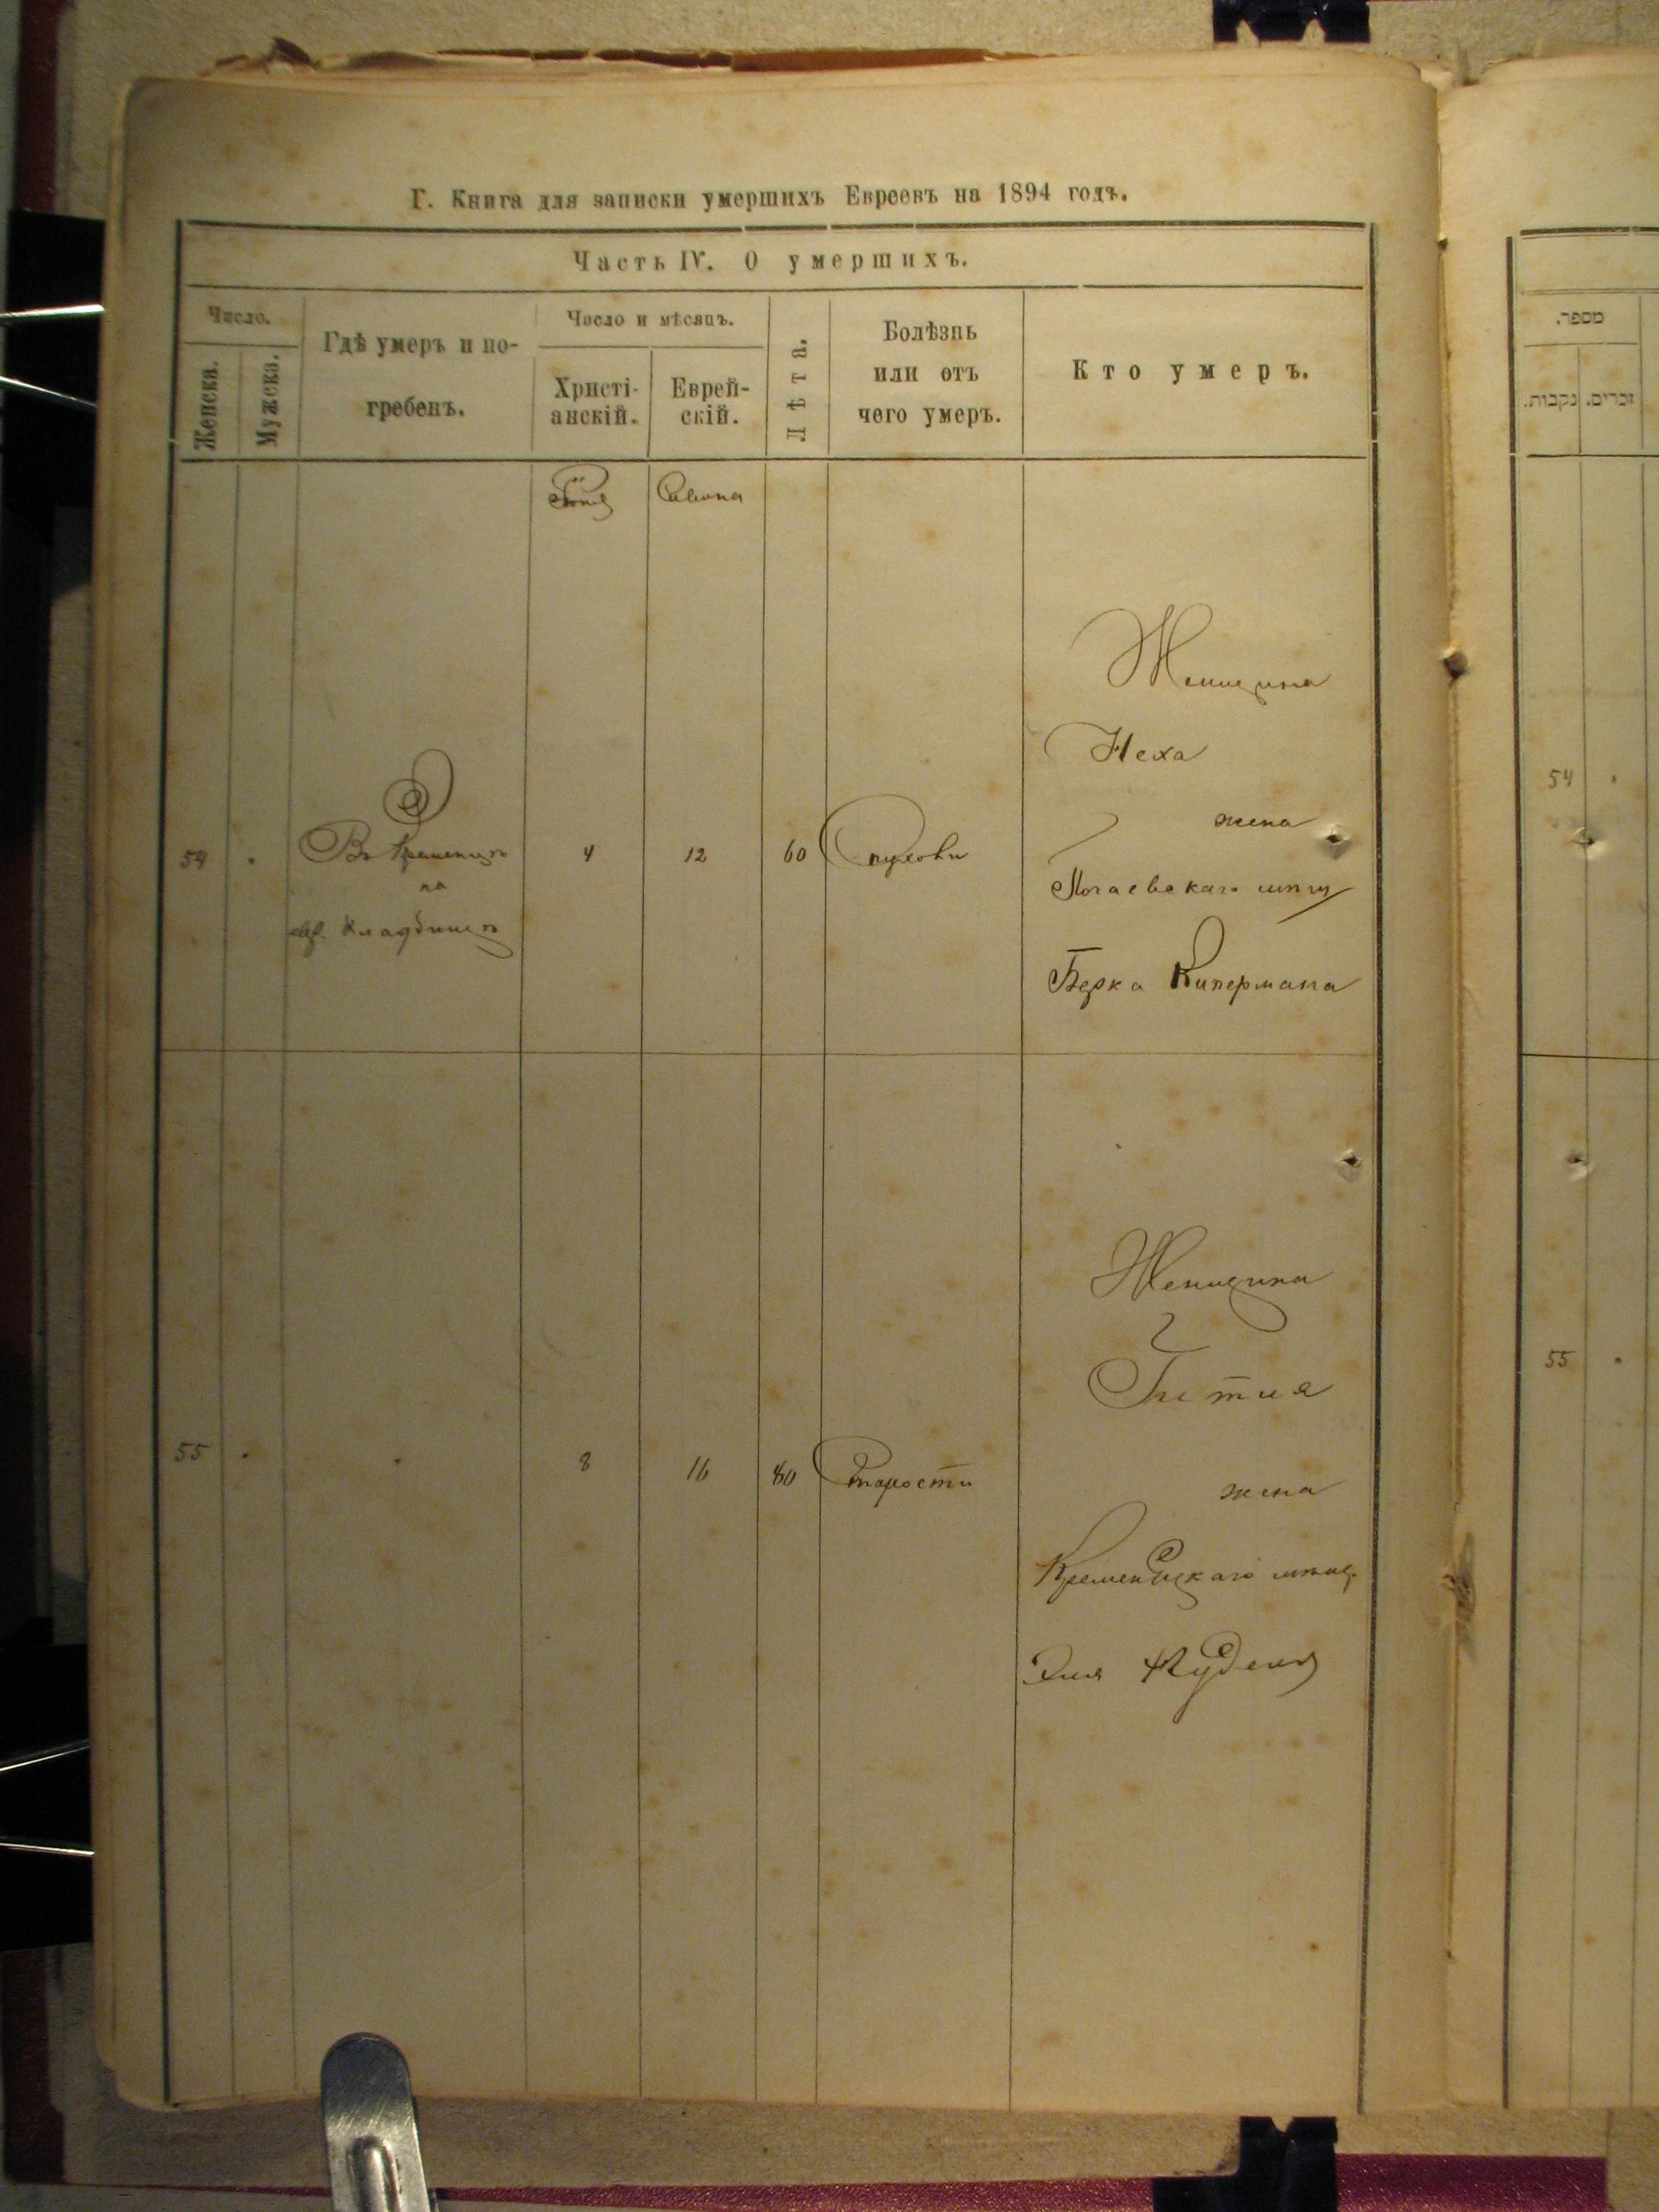 Г. Книга для записки умершихъ Евреевъ на 1894 годъ.
Часть IV. О умершихъ.
Число.
Женска.
Мужеска.
Гдѣ умеръ и по-
гребенъ.
Число и мѣсяцъ.
Христі-
анскій.
Еврей-
скій.
Лѣта.
Болѣзнь
или отъ
чего умеръ.
Кто умеръ.
Сивона
54
Въ Кременцѣ
на
евр. кладбищѣ
4
12
60
Женщина
Неха
жена
Почаевскаго
Берка Кипермана
55
8
16
80
Старости
Женщина
жена
Кременецкаго
Эля
מספר.
נקבות.
זכרים.
54
55